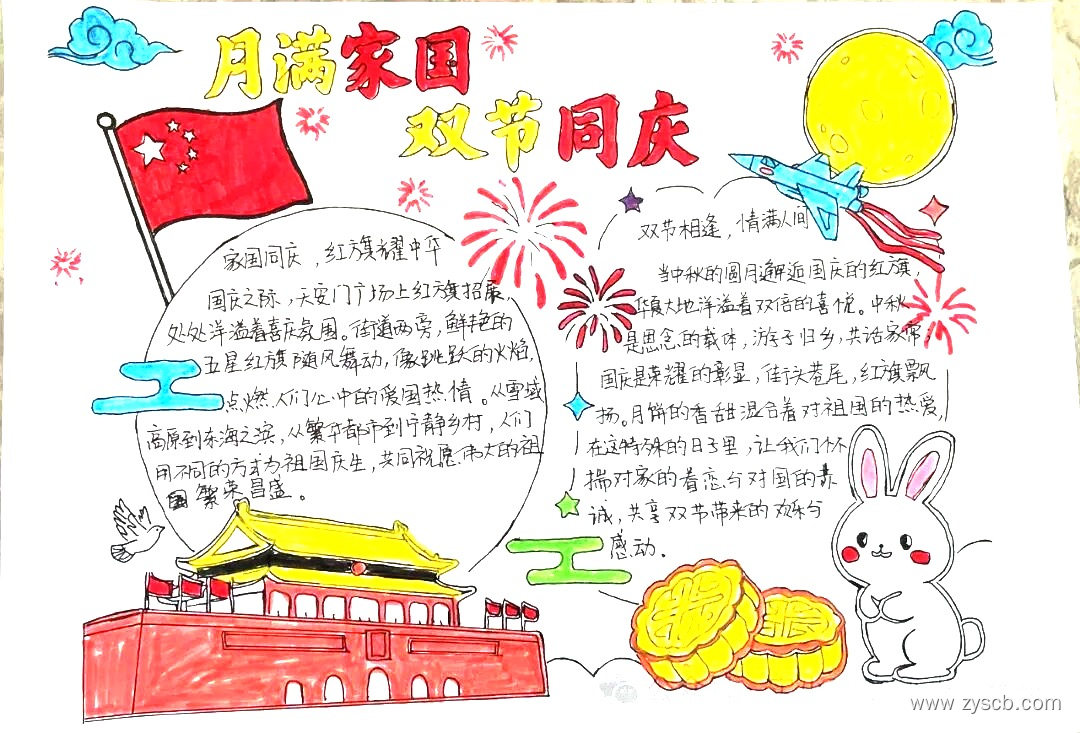 月满家国
双节同庆
家国同庆，红旗耀中华
国庆之际，天安门广场上红旗招展，
处处洋溢着喜庆氛围。街道两旁，鲜艳的
五星红旗随风舞动，像跳跃的火焰，
点燃人们心中的爱国热情。从雪域
高原到东海之滨，从繁华都市到宁静乡村，人们
用不同的方式为祖国庆生，共同祝愿伟大的祖
国繁荣昌盛。
双节相逢，情满人间
当中秋的圆月邂逅国庆的红旗，
华夏大地洋溢着双倍的喜悦。中秋
是思念的载体，游子归乡，共话家常，
国庆是荣耀的彰显，街头巷尾，红旗飘
扬。月饼的香甜混合着对祖国的热爱，
在这特殊的日子里，让我们怀
揣对家的眷恋与对国的赤
诚，共享双节带来的欢乐与
感动.
www.zyscb.com